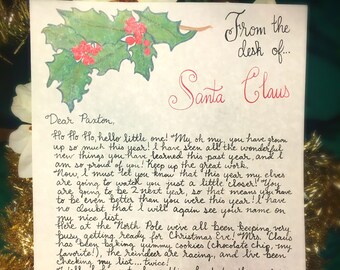 From the
desk of...
Santa Claus
Dear Paxton,
Ho Ho Ho, hello little one! My oh my, you have grown
up so much this year! I have seen all the wonderful
new things you have learned this past year, and I
am so proud of you! Keep up the great work.
Now, I must let you know that this year my elves
are going to watch you just a little closer! You
are going to be 2 next year, so that means you have
to be even better than you were this year! I have
no doubt that I will again see your name on
my nice list.
Here at the North Pole we've all been keeping very
busy getting ready for Christmas Eve! Mrs. Claus
has been baking yummy cookies (chocolate chip, my
favorite!), the reindeer are racing, and I've been
checking my list... twice!